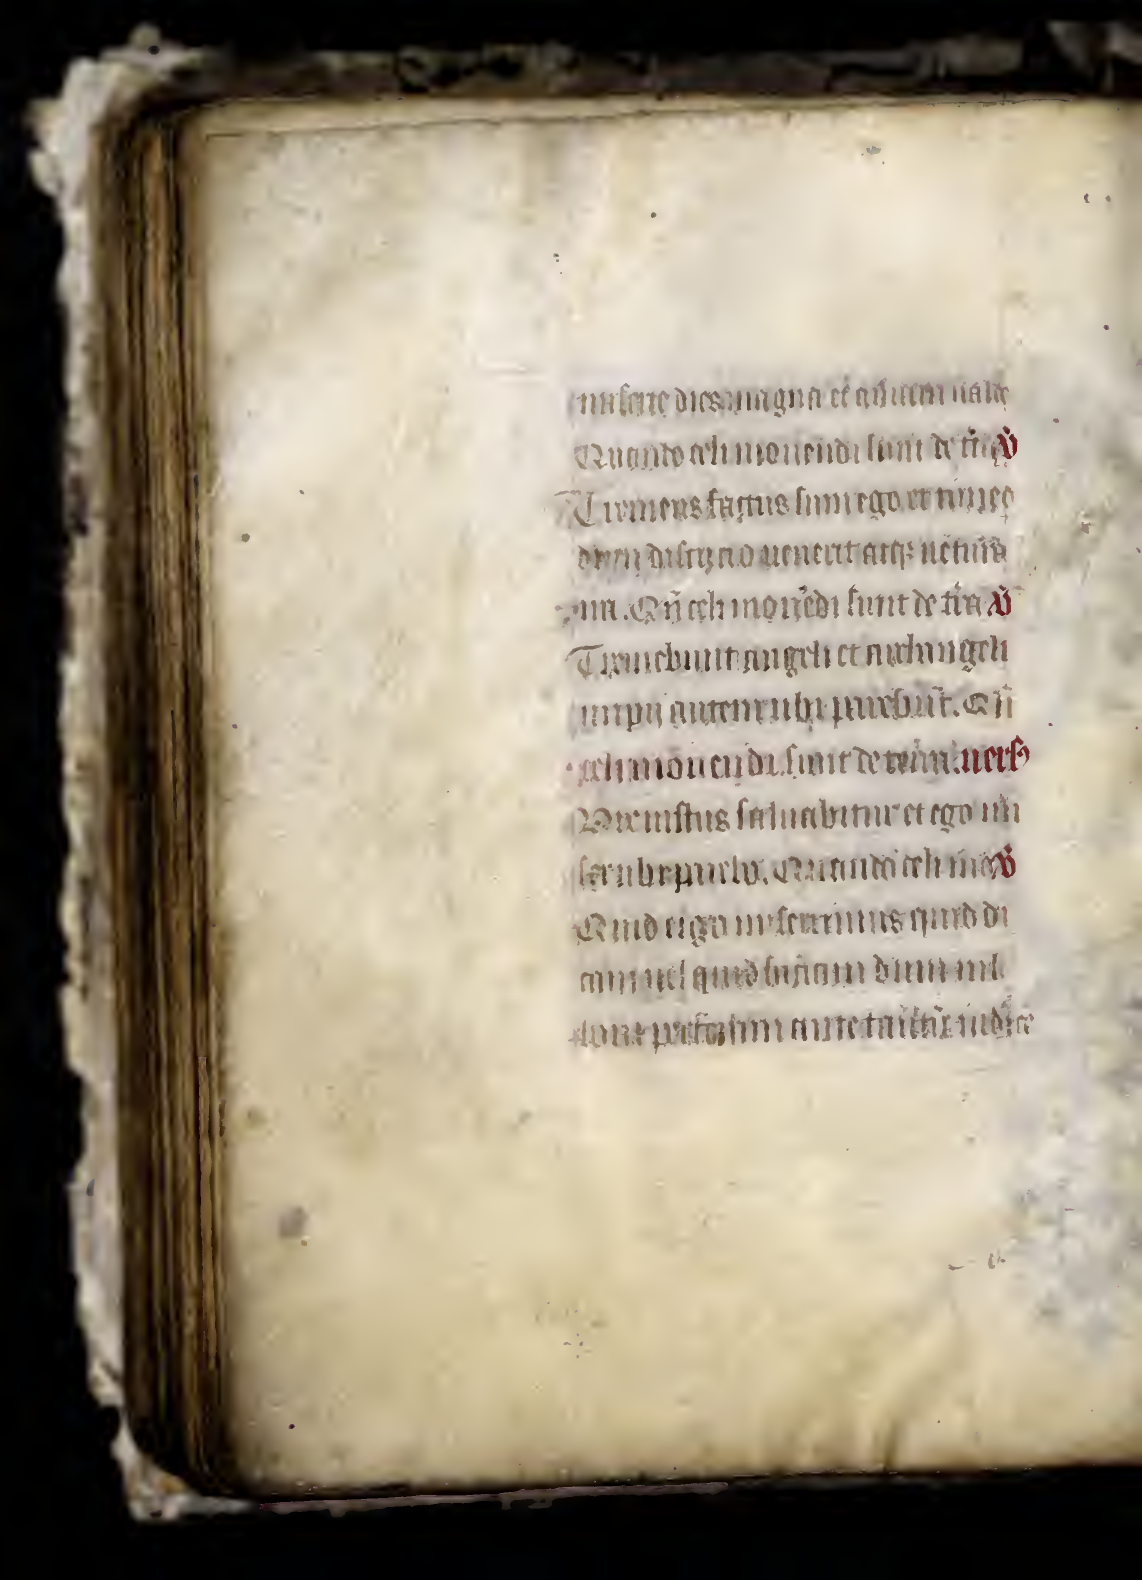 miserie dies magna et amara ualde
Quando celi mouendi sunt de tr̃a ℣
Tremens factus sum ego et timeo
dum discussio uenerit atq; uentura
ira. Qñ celi mouẽdi sunt de tr̃a ℣
Tremebunt angeli et archangeli
impii autem ubi parebũt. Qñ
celi mouendi sunt de terra. uers
Vix iustus saluabitur et ego mi
ser ubi parebo. Quando celi m ℣
Quid ergo miserrimus quid di
cam uel quid faciam dum nil
boni perferam ante tantũ iudicẽ